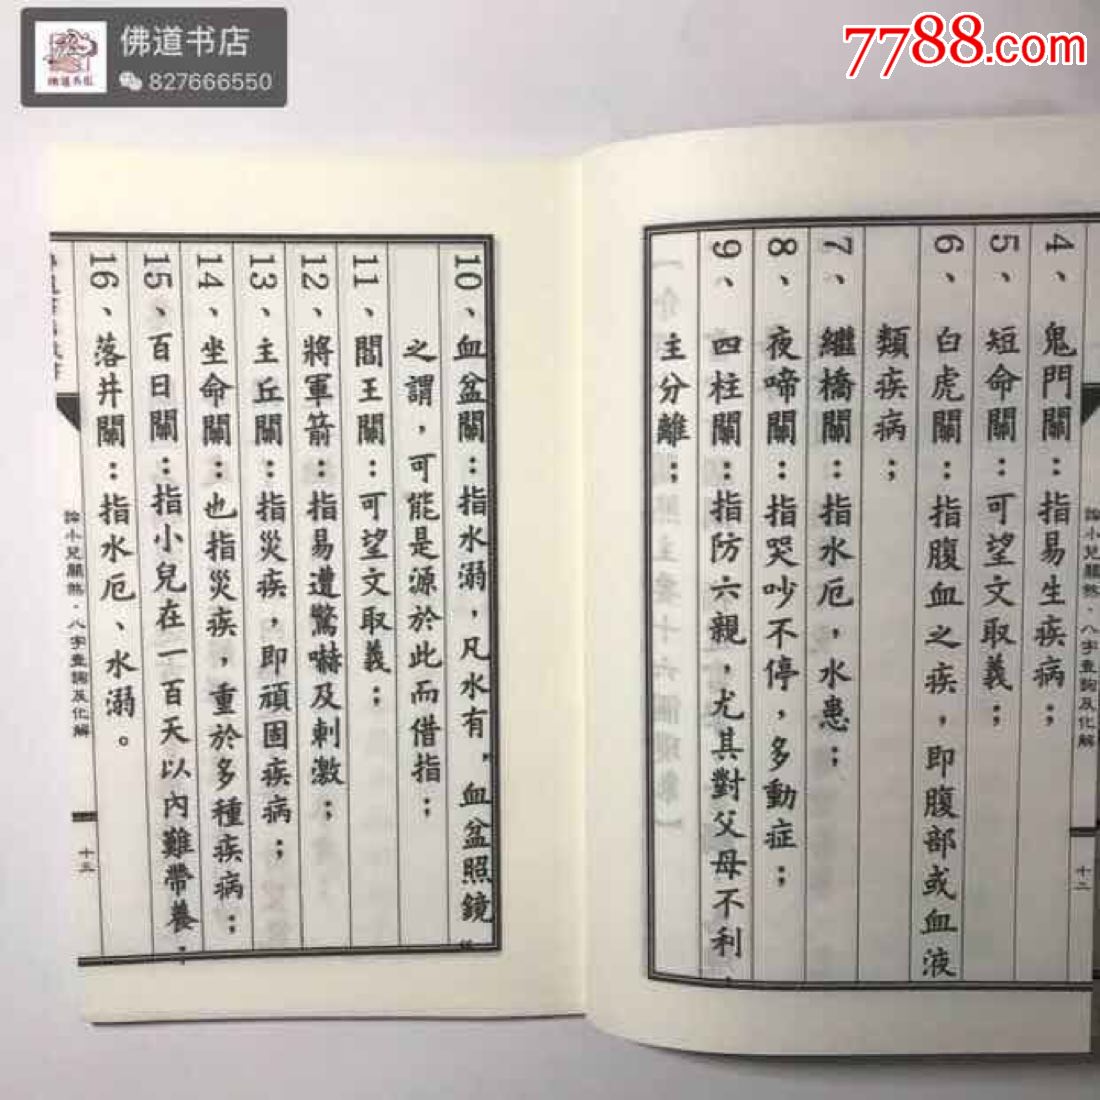 佛道书店
827666550
7788.com
4、鬼門關：指易生疾病；
5、短命關：可望文取義；
6、白虎關：指腹血之疾，即腹部或血液
類疾病；
7、繼橋關：指水厄，水患；
8、夜啼關：指哭吵不停，多動症；
9、四柱關：指防六親，尤其對父母不利，
主分離；
論小兒關煞·八字查詢及化解
十二
10、血盆關：指水溺，凡水有，血盆照鏡"
之謂，可能是源於此而借指；
11、閻王關：可望文取義；
12、將軍箭：指易遭驚嚇及刺激；
13、主丘關：指災疾，即頑固疾病；
14、坐命關：也指災疾，重於多種疾病；
15、百日關：指小兒在一百天以內難帶養；
16、落井關：指水厄、水溺。
論小兒關煞·八字查詢及化解
十三